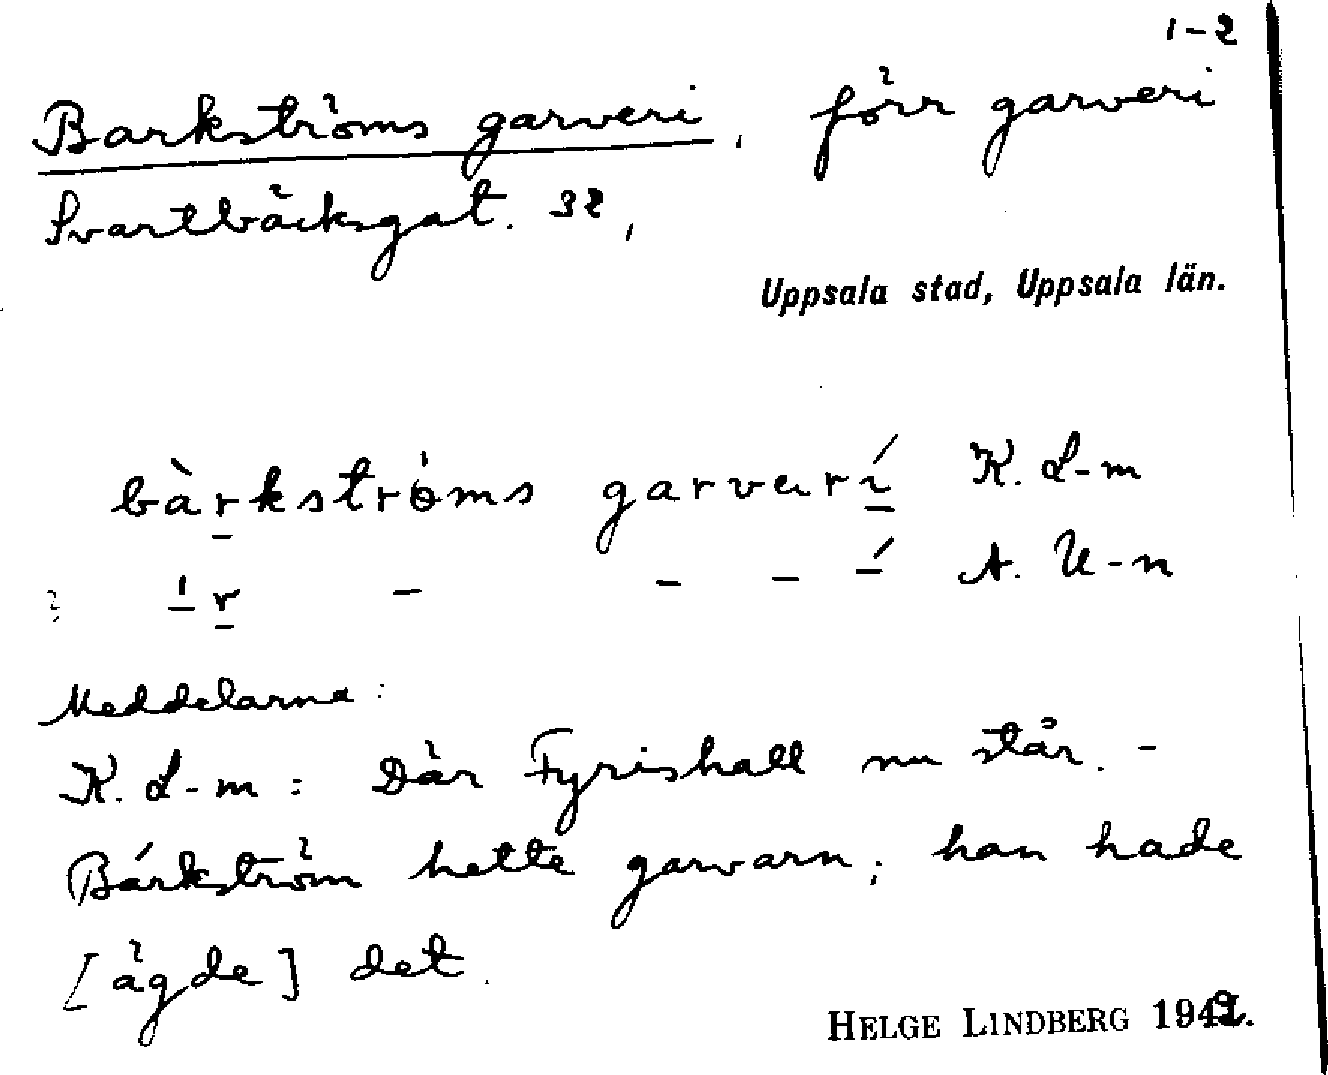 1-2
Barkströms garveri, förr garveri
Svartbäcksgat. 32,
Uppsala stad, Uppsala län.
bàrkströms garverí K. L-m
ˈr - - - ˊ A. U-n
Meddelarna:
K. L-m: Där Fyrishall nu står. -
Bárkström hette garvarn; han hade
[ägde] det.
HELGE LINDBERG 1942.